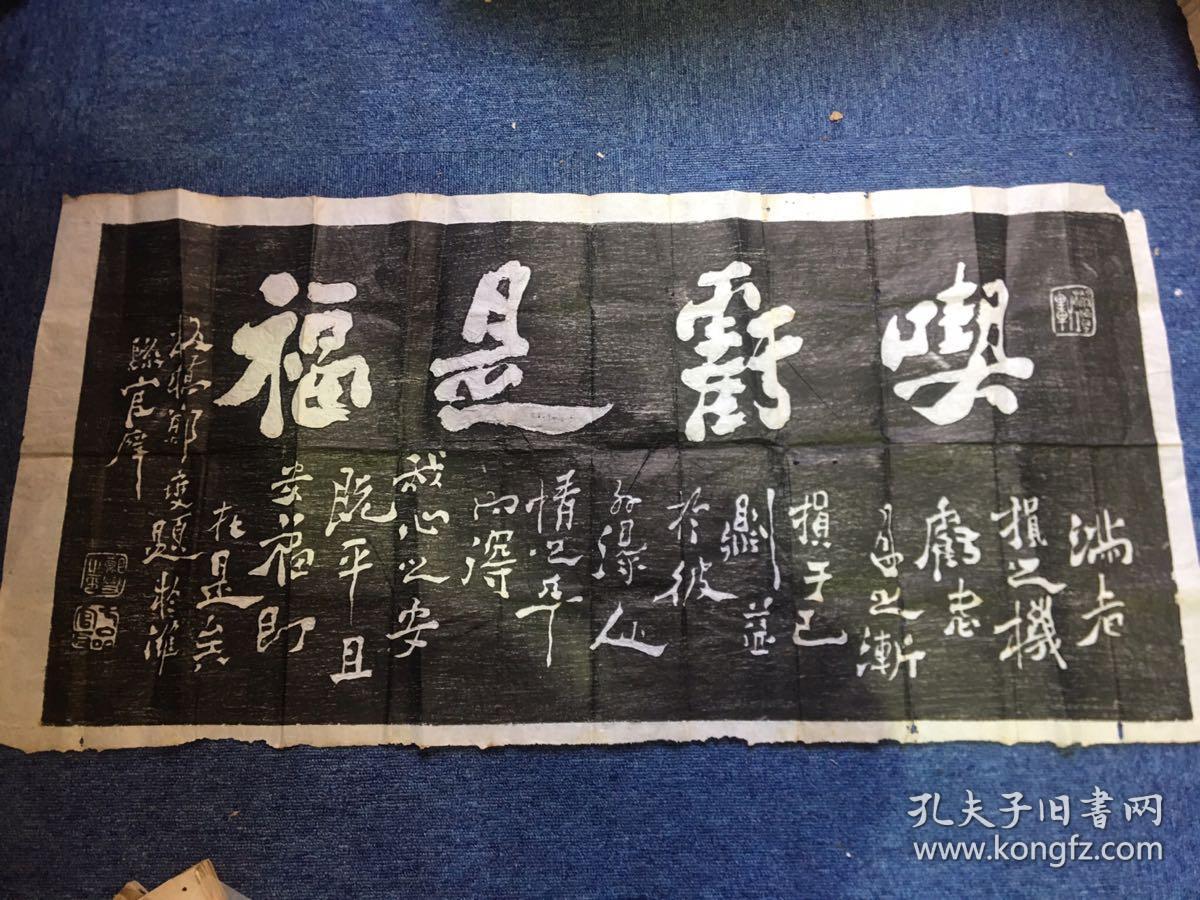 喫虧是福
滿者
損之機
虧者
盈之漸
損于己
則益
於彼
外得人
情之平
內得
我心之安
既平且
安福即
在是矣
板橋鄭燮題於濰
縣官廨
孔夫子旧書网
www.kongfz.com